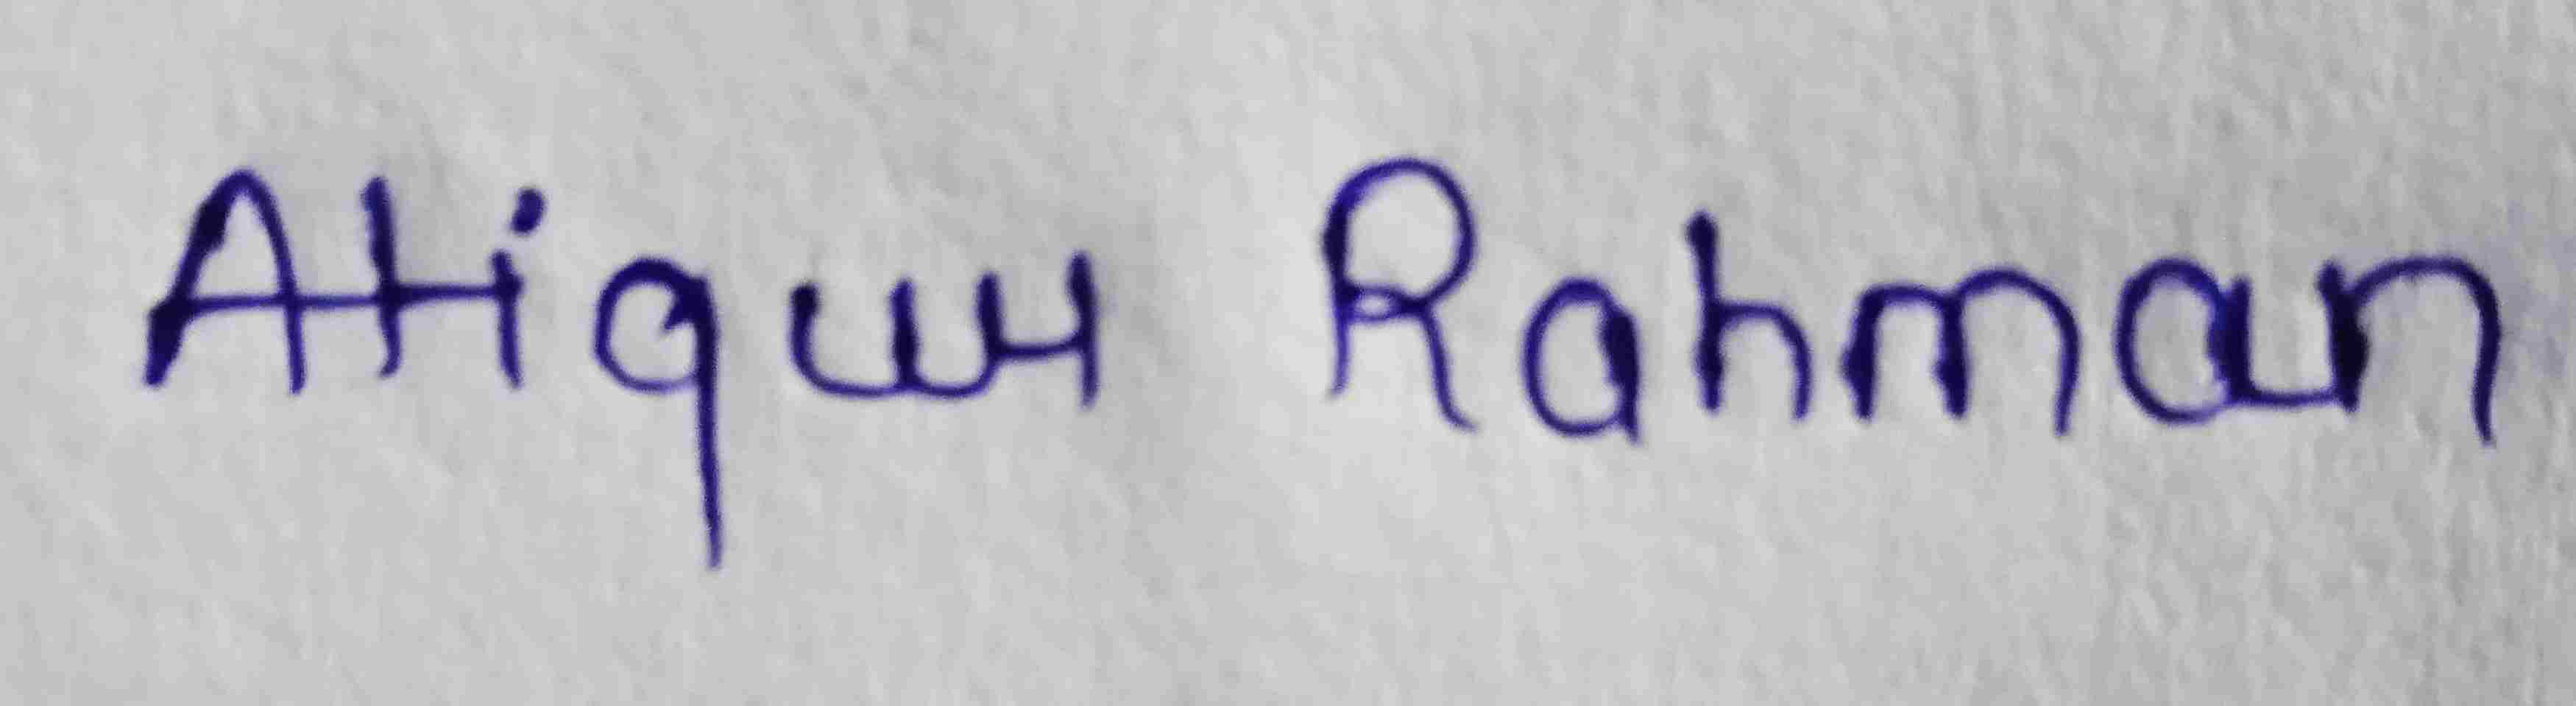 Atiqur Rahman